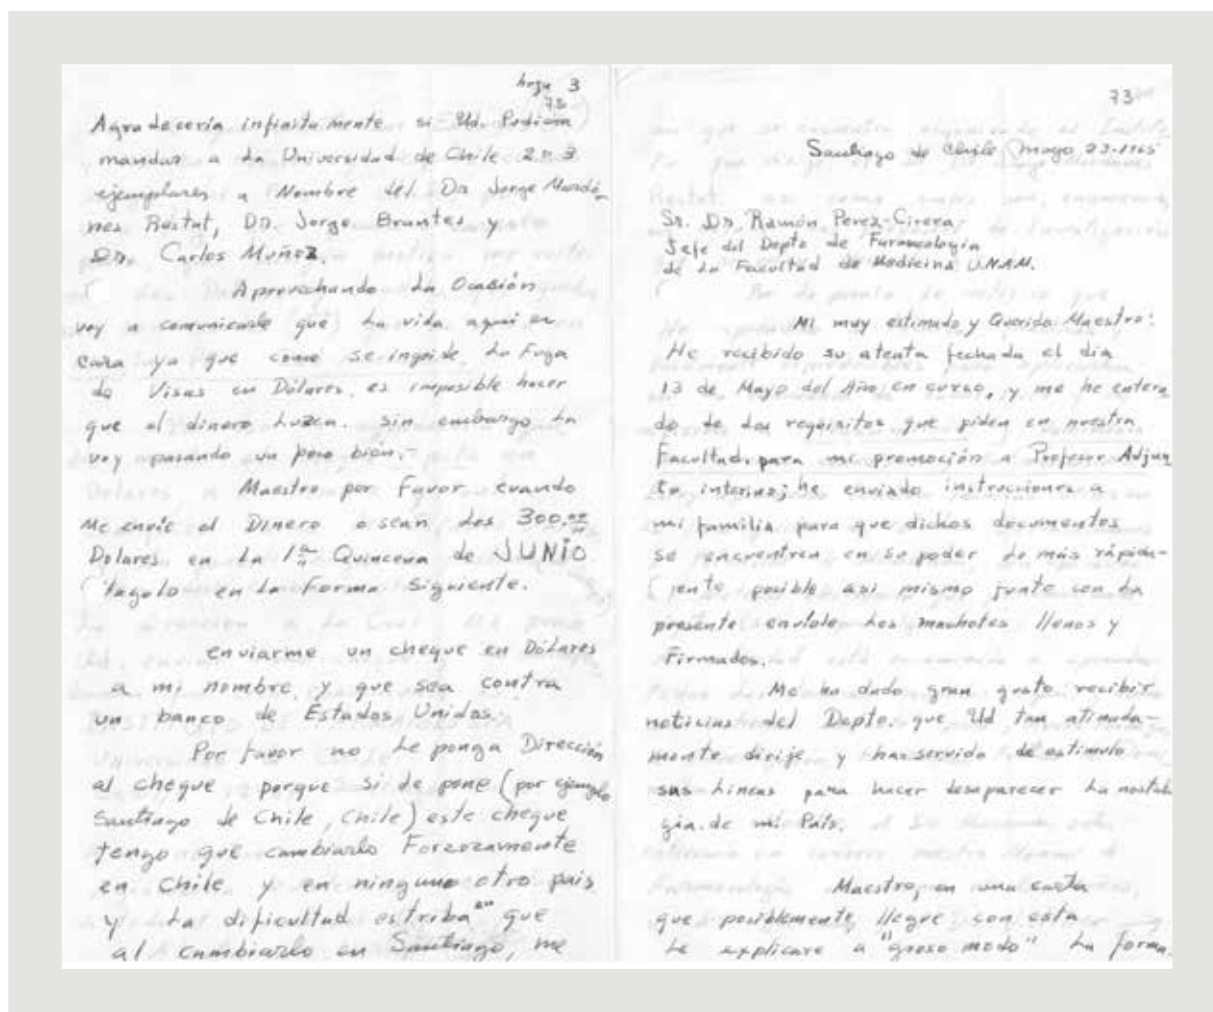 hoja 3
73
Agradecería infinitamente si Ud. Pudiera
mandar a La Universidad de Chile 2 o 3
ejemplares a Nombre del Dr Jorge Mardó-
nes Restat, Dr. Jorge Bruntes y
Dr. Carlos Muñoz.
Aprovechando La Ocasión
voy a comunicarle que La vida aquí es
cara ya que como se impide La Fuga
de Visas en Dólares, es imposible hacer
que el dinero Luzca. sin embargo La
voy pasando un poco bien.-
Maestro por Favor cuando
Me envíe el Dinero o sean Los 300.00
Dolares en La 1a Quincena de JUNIO
hagalo en La Forma Siguiente.
enviarme un cheque en Dólares
a mi nombre y que sea contra
un banco de Estados Unidos.
Por favor no Le ponga Dirección
al cheque porque si Le pone (por ejemplo
Santiago de Chile, Chile) este cheque
tengo que cambiarlo Forzozamente
en Chile y en ninguno otro pais
y La dificultad estriba en que
al cambiarlo en Santiago, me
73
Santiago de Chile mayo 23-1965
Sr. Dr. Ramón Perez-Cirera
Jefe del Depto de Farmacología
de La Facultad de Medicina UNAM.
Mi muy estimado y Querido Maestro:
He recibido su atenta fechada el día
13 de Mayo del Año en curso, y me he entera
do de Los requisitos que piden en nuestra
Facultad, para mi promoción a Profesor Adjun
to interino; he enviado instrucciones a
mi familia para que dichos documentos
se encuentren en su poder Lo más rápida-
mente posible asi mismo junto con La
presente envíole Los machotes llenos y
Firmados.
Me ha dado gran gusto recibir
noticias del Depto. que Ud tan atinada-
mente dirije y han servido de estimulo
sus Líneas para hacer desaparecer La nostal
gia de mi País.
Maestro, en una carta
que posiblemente llegue con esta
Le explicare a "groso modo" La forma